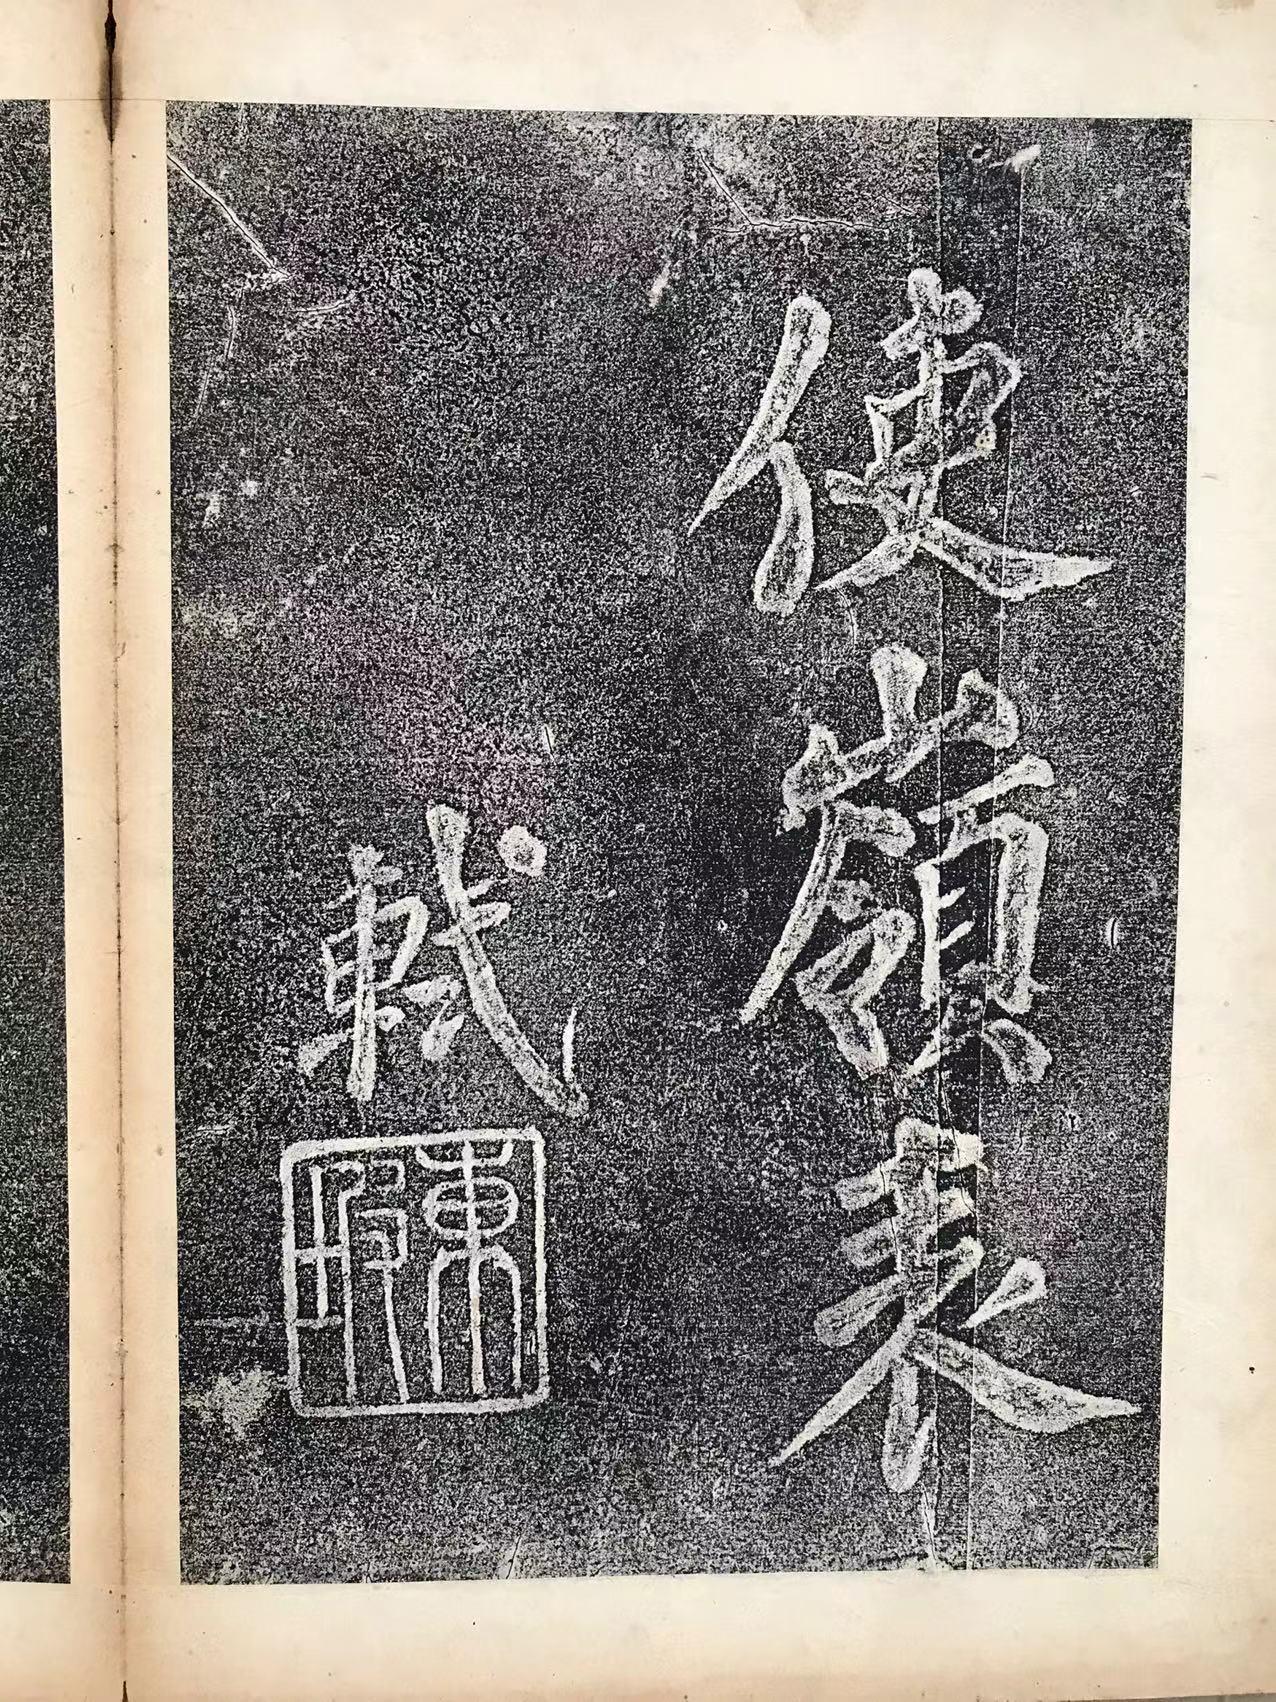 使嶺表
軾
東坡